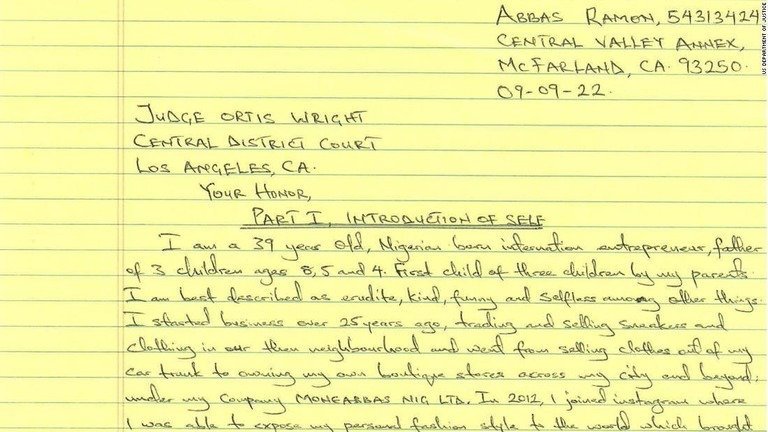 ABBAS RAMON, 54313424
CENTRAL VALLEY ANNEX,
McFARLAND, CA. 93250.
09-09-22.
JUDGE ORTIS WRIGHT
CENTRAL DISTRICT COURT
LOS ANGELES, CA.
YOUR HONOR,
PART I, INTRODUCTION OF SELF
I am a 39 year old, Nigerian born internation entrepreneur, father
of 3 children ages 8, 5 and 4. First child of three children by my parents.
I am best described as erudite, kind, funny and selfless among other things.
I started business over 25 years ago, trading and selling sneakers and
clothing in our then neighbourhood and went from selling clothes out of my
car trunk to owning my own boutique stores across my city and beyond;
under my company MONEABBAS NIG LTD. In 2012, I joined instagram where
I was able to expose my personal fashion style to the world which brought
US DEPARTMENT OF JUSTICE